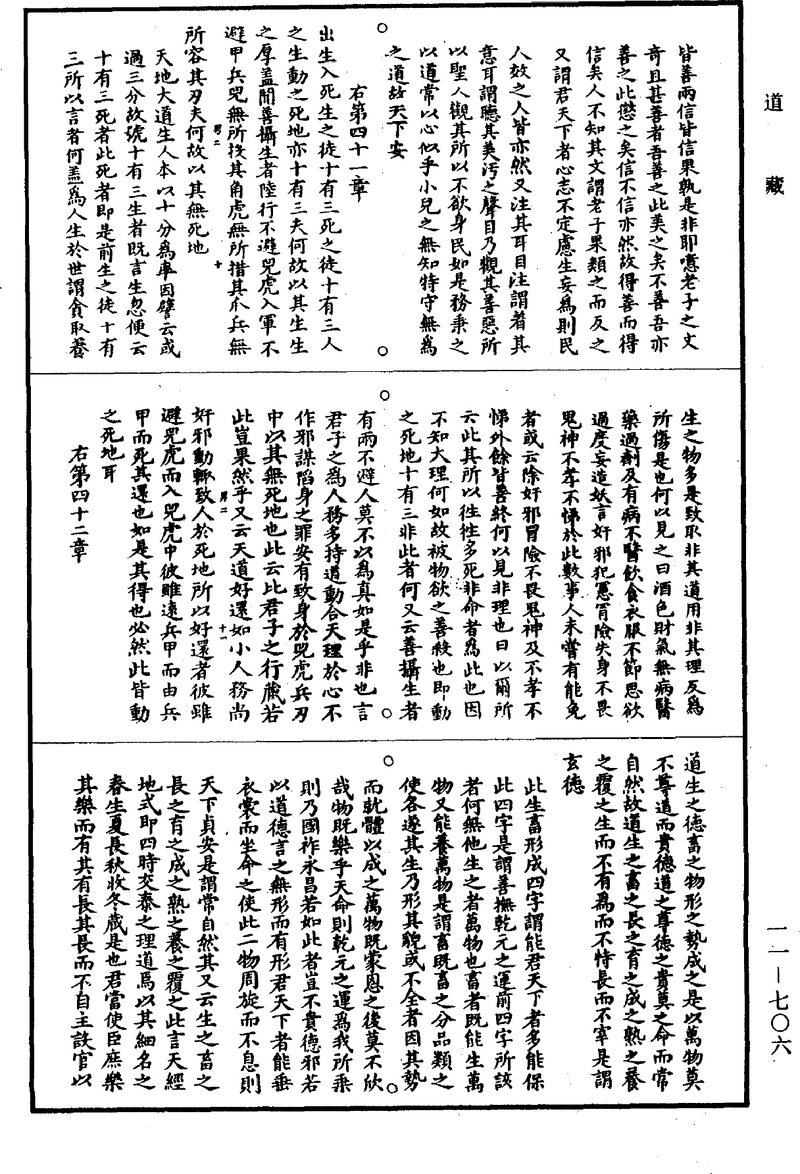 道藏
皆善兩信皆信果孰是非耶噫老子之文
奇且甚善者吾善之此美之矣不善吾亦
善之此懲之矣信不信亦然故得善而得
信矣人不知其文謂老子果類之而反之
又謂君天下者心志不定慮生妄為則民
人效之人皆亦然又注其耳目注謂着其
意耳謂聽其美污之聲目乃觀其善惡所
以聖人觀其所以不欲身民如是務秉之
以道常以心似乎小兒之無知特守無為
之道故天下安
右第四十一章
出生入死生之徒十有三死之徒十有三人
之生動之死地亦十有三夫何故以其生生
之厚蓋聞善攝生者陸行不避兕虎入軍不
避甲兵兕無所投其角虎無所措其爪兵無
所容其刃夫何故以其無死地
天地大道生人本以十分為率因譬云或
過三分故號十有三生者既言生忽便云
十有三死者此死者即是前生之徒十有
三所以言者何蓋為人生於世謂貪取養
生之物多是致取非其道用非其理反為
所傷是也何以見之曰酒色財氣無病醫
藥過劑及有病不醫飲食衣服不節思欲
過度妄造妖言奸邪犯憲冒險失身不畏
鬼神不孝不悌於此數事人未嘗有能免
者或云除奸邪冒險不畏鬼神及不孝不
悌外餘皆善終何以見非理也曰以爾所
云此其所以往往多死非命者為此也因
不知大理何如故被物欲之善殺也即動
之死地十有三非此者何又云善攝生者
有兩不避人莫不以為真如是乎非也言
君子之為人務多持道動合天理於心不
作邪謀陷身之罪安有致身於兕虎兵刃
中以其無死地也此云比君子之行藏若
此豈果然乎又云天道好還如小人務尚
奸邪動輒致人於死地所以好還者彼雖
避兕虎而入兕虎中彼雖遠兵甲而由兵
甲而死其還也如是其得也必然此皆動
之死地耳
右第四十二章
道生之德畜之物形之勢成之是以萬物莫
不尊道而貴德道之尊德之貴莫之命而常
自然故道生之畜之長之育之成之熟之養
之覆之生而不有為而不恃長而不宰是謂
玄德
此生畜形成四字謂能君天下者多能保
此四字是謂善撫乾元之運前四字所該
者何無他生之者萬物也畜者既能生萬
物又能養萬物是謂畜既畜之分品類之
使各遂其生乃形其貌或不全者因其勢
而就體以成之萬物既蒙恩之後莫不欣
哉物既樂乎天命則乾元之運為我所乘
則乃國祚永昌若如此者豈不貴德邪若
以道德言之無形而有形君天下者能垂
衣裳而坐命之使此二物周旋而不息則
天下貞安是謂常自然其又云生之畜之
長之育之成之熟之養之覆之此言天經
地式即四時交泰之理道焉以其細名之
春生夏長秋收冬藏是也君當使臣庶樂
其樂而有其有長其長而不自主訣官以
一一—七〇六